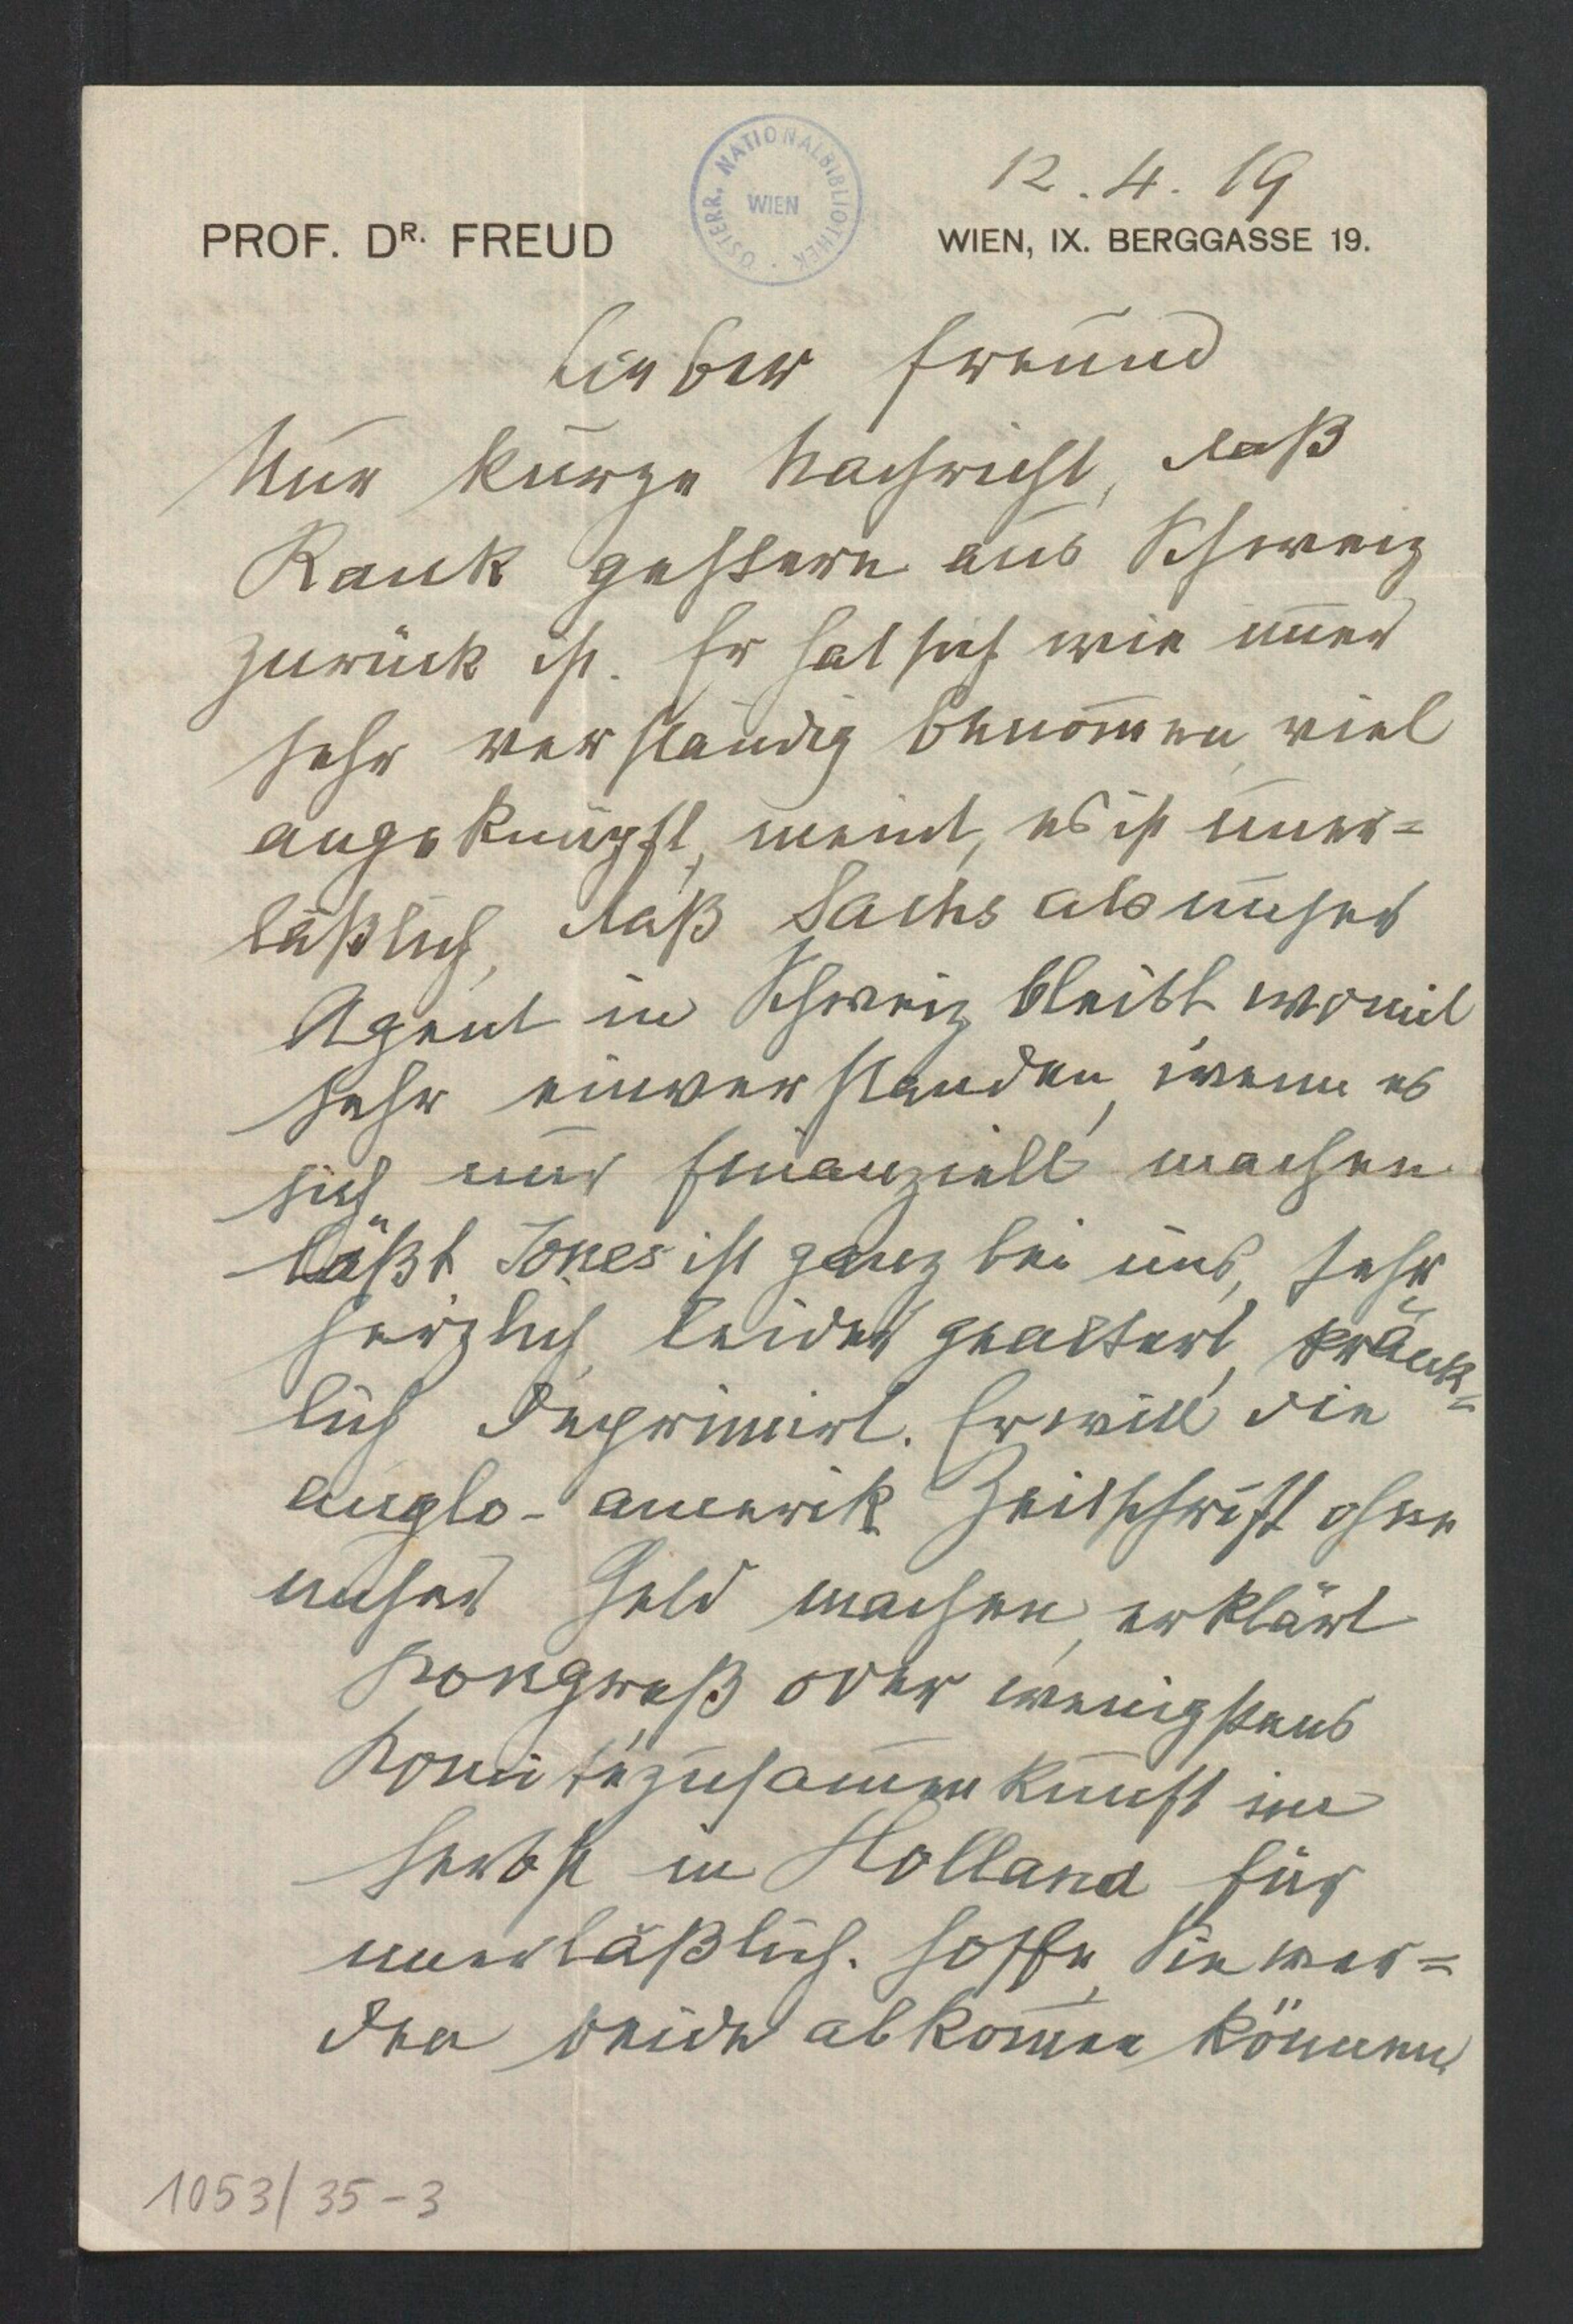 12.4.19
ÖSTERR. NATIONALBIBLIOTHEK
WIEN
PROF. DR. FREUD
WIEN, IX. BERGGASSE 19.
Lieber Freund
Nur kurze Nachricht, daß
Rank gestern aus Schweiz
zurück ist. Er hat sich wie immer
sehr verständig benom̄en, viel
angeknüpft, meint, es ist uner=
läßlich, daß Sachs als unser
Agent in Schweiz bleibt womit
sehr einverstanden, wenn es
sich nur finanziell machen
läßt. Jones ist ganz bei uns, sehr
herzlich, leider gealtert, kränk=
lich deprimirt. Er will die
anglo-amerik Zeitschrift ohne
unser Geld machen, erklärt
Kongreß oder wenigstens
Komitézusam̄enkunft im
Herbst in Holland für
unerläßlich. Hoffe, Sie wer=
den beide abkom̄en können
1053/35-3